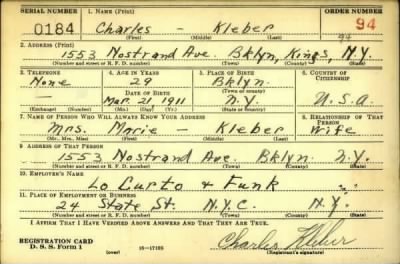 SERIAL NUMBER 1. NAME (Print) ORDER NUMBER
0184 Charles – Kleber 94
(First) (Middle) (Last) 94
2. ADDRESS (Print)
1553 Nostrand Ave Bklyn, Kings, N.Y.
(Number and street or R. F. D. number) (Town) (County) (State)
3. TELEPHONE 4. AGE IN YEARS 5. PLACE OF BIRTH 6. COUNTRY OF CITIZENSHIP
None 29 Bklyn.
DATE OF BIRTH (Town or county)
– Mar. 21, 1911 N.Y. U.S.A.
(Exchange) (Number) (Mo.) (Day) (Yr.) (State or country)
7. NAME OF PERSON WHO WILL ALWAYS KNOW YOUR ADDRESS 8. RELATIONSHIP OF THAT PERSON
Mrs. Marie – Kleber Wife
(Mr., Mrs., Miss) (First) (Middle) (Last)
9. ADDRESS OF THAT PERSON
1553 Nostrand Ave. Bklyn N.Y.
(Number and street or R. F. D. number) (Town) (County) (State)
10. EMPLOYER'S NAME
Lo Curto + Funk
11. PLACE OF EMPLOYMENT OR BUSINESS
24 State St. N.Y.C. N.Y.
(Number and street or R. F. D. number) (Town) (County) (State)
I AFFIRM THAT I HAVE VERIFIED ABOVE ANSWERS AND THAT THEY ARE TRUE.
REGISTRATION CARD
D. S. S. Form 1 (over) 16—17105 Charles Kleber
(Registrant's signature)